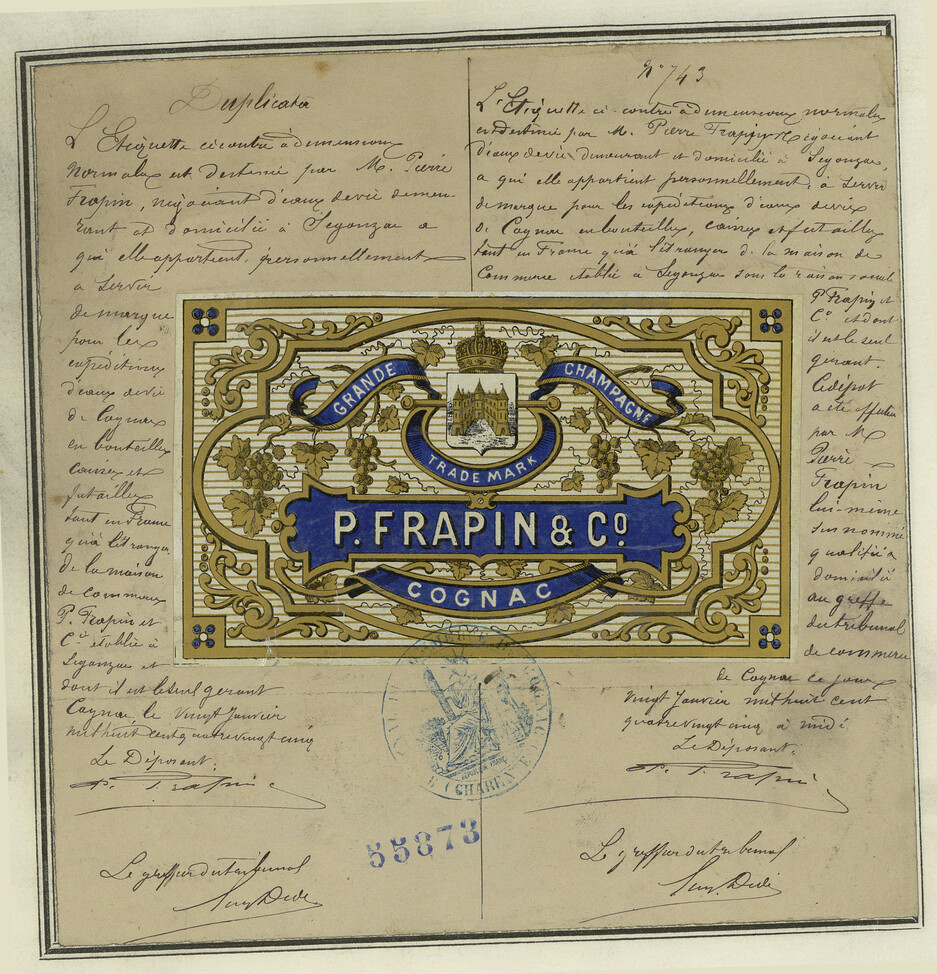 Duplicata
L'Etiquette ci contre à dimensions
normales est destinée par M. Pierre
Frapin, négociant d'eaux devie demeu-
rant et domicilié à Segonzac a
qui elle appartient personnellement
a servir
de marque
pour les
expeditions
d'eaux devie
de Cognac
en bouteilles
caisses et
futailles
tant en France
qu'à l'étranger
de la maison
de commerce
P. Frapin et
Cie établie à
Segonzac et
dont il est le seul gerant
Cognac, le vingt Janvier
mil huit cent quatre vingt cinq
Le Déposant:
P. Frapin
Le greffier du tribunal
N° 743
L'Etiquette ci-contre à dimensions normales
est destinée par M. Pierre Frapin Négociant
d'eaux devie, demeurant et domicilié à Segonzac,
a qui elle appartient personnellement, à servir
de marque pour les expeditions d'eaux devie
de Cognac en bouteilles, caisses et futailles
tant en France qu'à l'étranger de la maison de
Commerce établie à Segonzac sous la raison sociale
P. Frapin et
Cie et dont
il est le seul
gerant.
Ce dépot
a été effectué
par M.
Pierre
Frapin
lui-même
sus nommé
qualifié &
domicilié
au greffe
du tribunal
de commerce
de Cognac ce jour
vingt Janvier mil huit cent
quatre vingt cinq à midi
Le Déposant:
P. Frapin
Le greffier du tribunal
GRANDE CHAMPAGNE
TRADE MARK
P. FRAPIN & Cº.
COGNAC
(CHARENTE)
55873